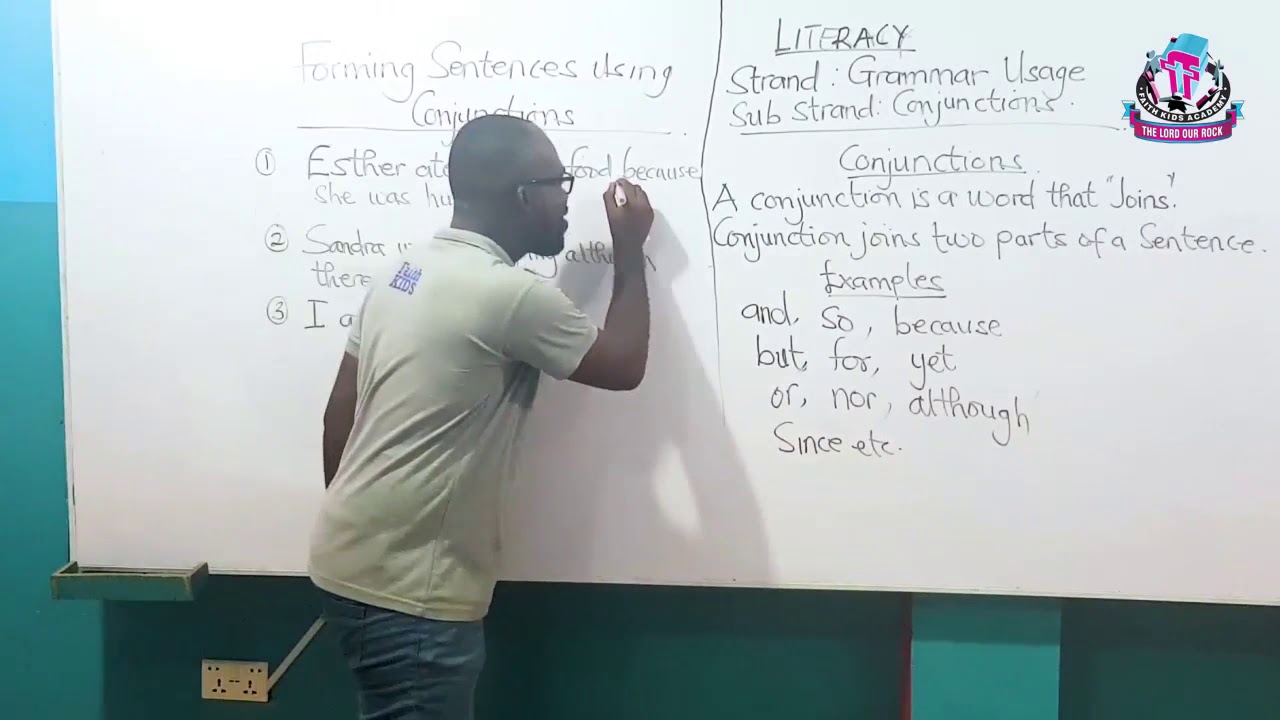 Forming Sentences Using
Conjunctions
① Esther food because
she was
② Sandra although
there
③ I
LITERACY
Strand: Grammar Usage
Sub Strand: Conjunctions.
Conjunctions.
A conjunction is a word that "Joins".
Conjunction joins two parts of a Sentence.
Examples
and, so, because
but, for, yet
or, nor, although
Since etc.
Faith
KIDS
FAITH KIDS ACADEMY
THE LORD OUR ROCK